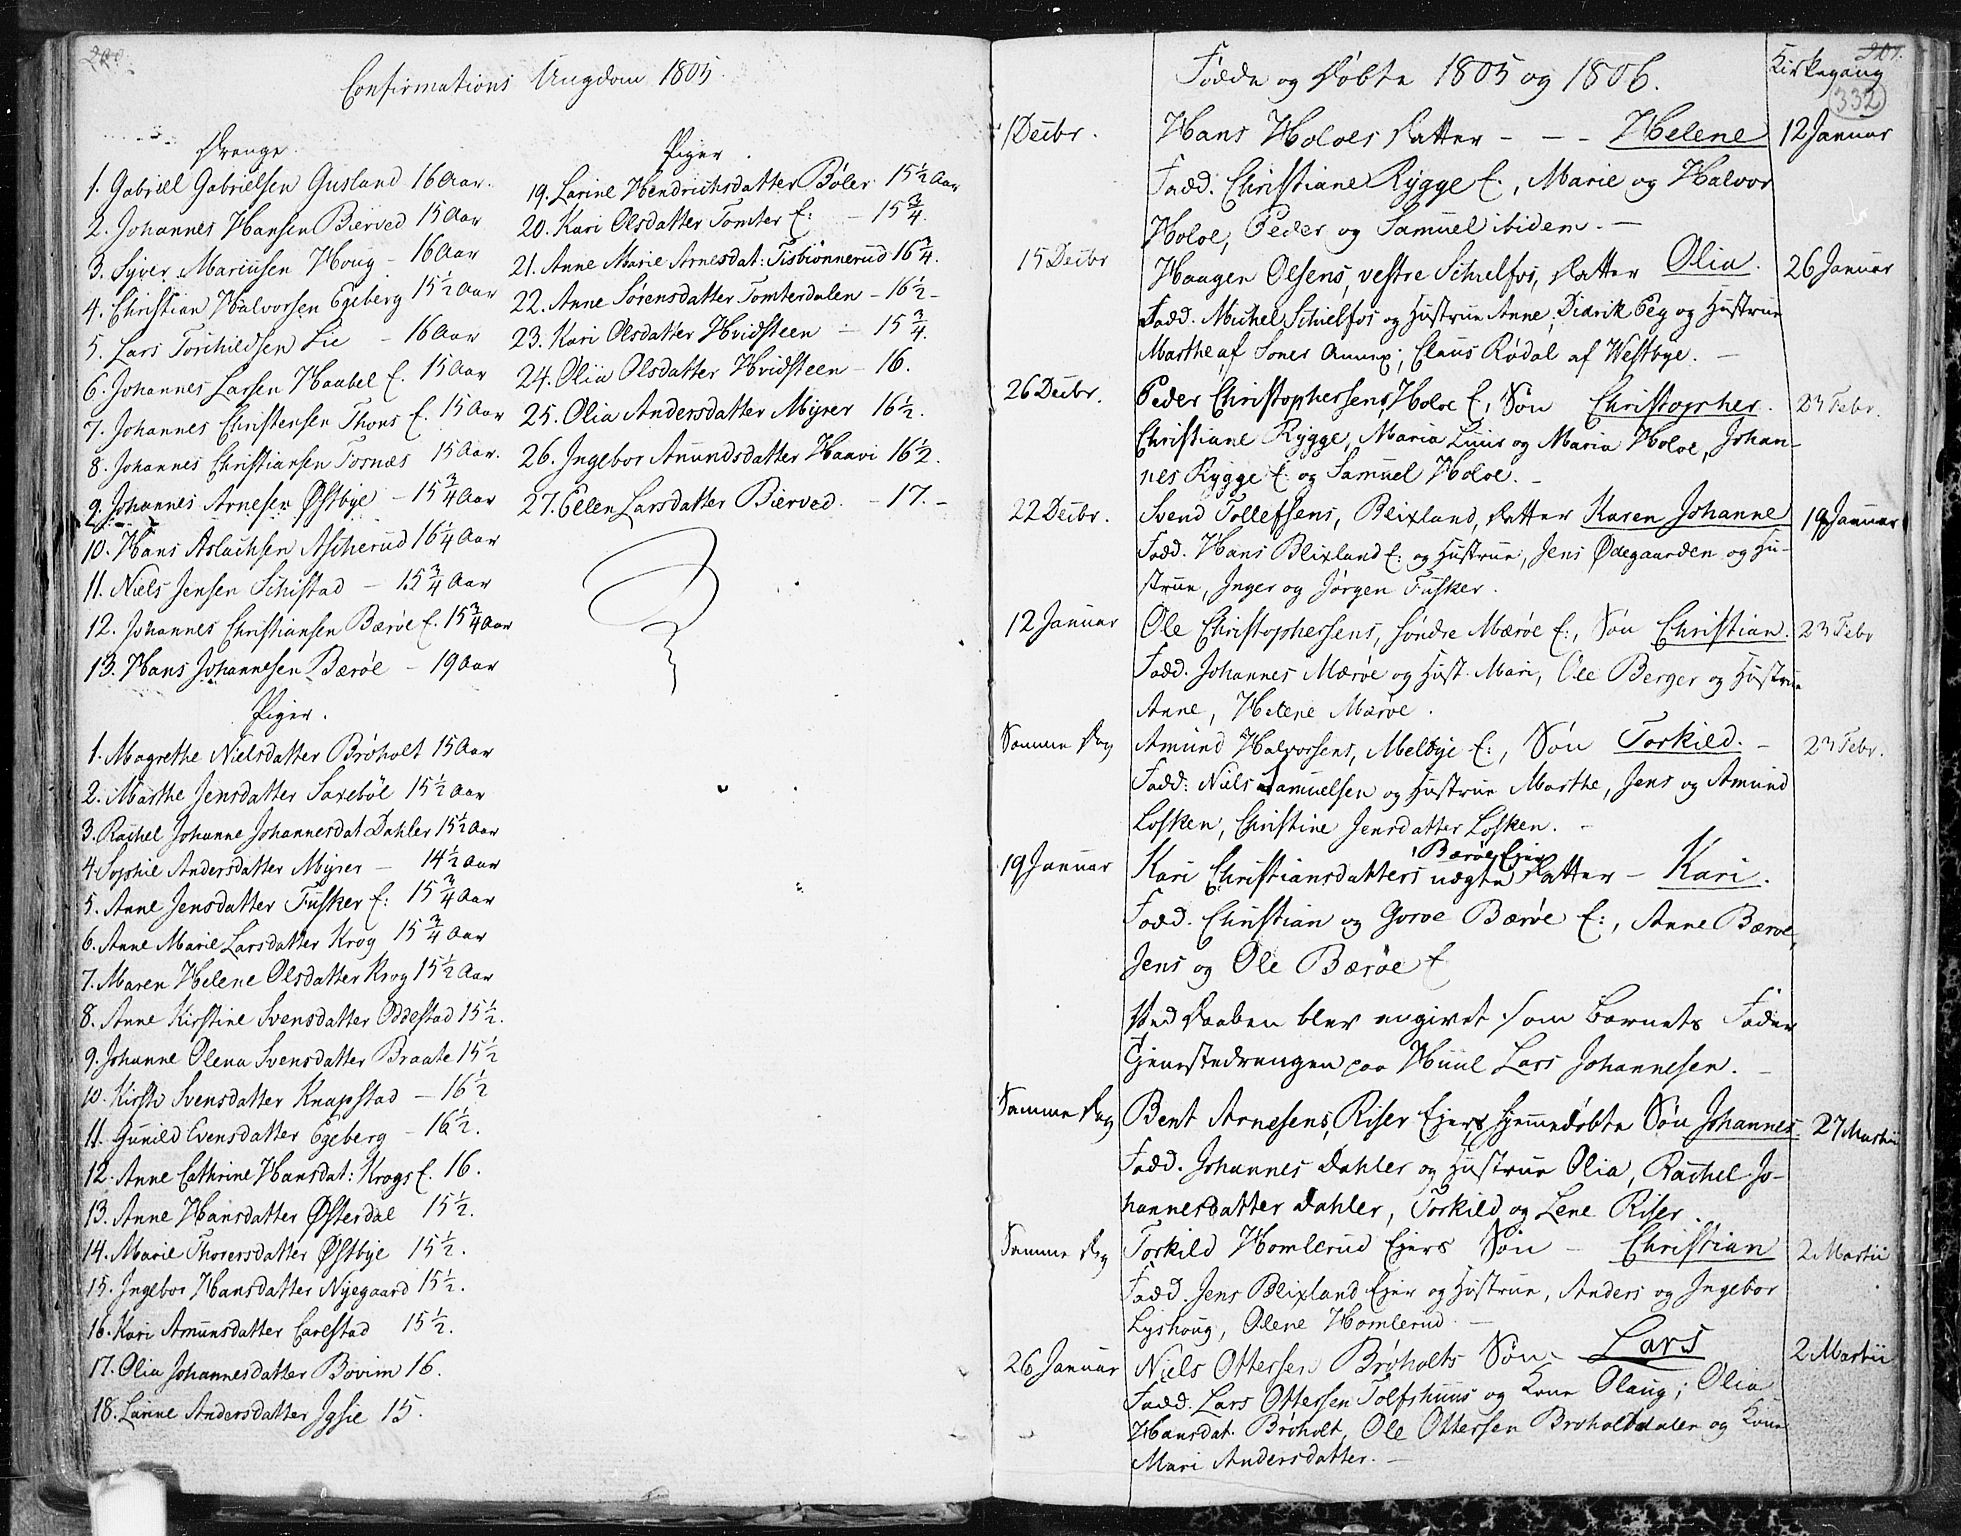 200.
Confirmations Ungdom 1805.
Drenge.
1. Gabriel Gabrielsen Gusland 16 Aar.
2. Johannes Hansen Bierved 15 Aar
3. Syver Mariusen Houg - 16 Aar
4. Christian Halvorsen Egeberg 15½ Aar
5. Lars Torchildsen Lie - 16 Aar
6. Johannes Larsen Haabel E. 15 Aar
7. Johannes Christensen Thons E. 15 Aar
8. Johannes Christiansen Tosnæs 15 Aar.
9. Johannes Arnesen Østbye - 15¾ Aar
10. Hans Aslachsen Ascherud 16¼ Aar
11. Niels Jensen Schistad - 15¾ Aar
12. Johannes Christiansen Bærøe E. 15¾ Aar
13. Hans Johannesen Bærøe - 19 Aar
Piger.
1. Magrethe Nielsdatter Brøholt 15 Aar
2. Marthe Jensdatter Saxebøl 15½ Aar
3. Rachel Johanne Johannesdat Dahler 15½ Aar
4. Sophie Andersdatter Myrer - 14½ Aar
5. Anne Jensdatter Fusker E: 15¾ Aar
6. Anne Marie Larsdatter Krog 15¾ Aar
7. Maren Helene Olsdatter Krog 15½ Aar
8. Anne Kirstine Svensdatter Oddestad 15½.
9. Johanne Olena Svensdatter Braate 15½
10. Kirsti Svensdatter Knapstad - 16½
11. Gunild Evensdatter Egeberg - 16½.
12. Anne Cathrine Hansdat: Krogs E. 16.
13. Anne Hansdatter Østerdal 15½.
14. Marie Thorersdatter Østbye 15½.
15. Ingebor Hansdatter Nyegaard 15½.
16. Kari Amunsdatter Carlstad 15½.
17. Olia Johannesdatter Bovim 16.
18. Larine Andersdatter Igsie 15.
Piger.
19. Larine Hendrichsdatter Bøler 15½ Aar
20. Kari Olsdatter Tomter E: - 15¾.
21. Anne Marie Arnesdat: Tisbiønnerud 16¾.
22. Anne Sørensdatter Tomterdalen - 16½ -
23. Kari Olsdatter Hvidsteen - 15¾.
24. Olia Olsdatter Hvidsteen - 16.
25. Olia Andersdatter Myrer 16½.
26. Ingebor Anundsdatter Haavi 16½.
27. Ellen Larsdatter Bierved. - 17. -
Fødde og Døbte 1805 og 1806.
Kirkegang
201.
332
1 Decbr. Hans Holoes Datter - - - Helene 12 Januar
Fadd. Christiane Rygge E., Marie og Halvor
Holoe, Peder og Samuel ibidem. -
15 Decbr Haagen Olsens, vestre Schielfos, Datter Olia. 26 Januar
Fadd. Michel Schielfos og Hustrue Anne, Didrik Peg og Hustrue
Marthe, af Soner Annex; Claus Rødal af Westbye. -
26 Decbr. Peder Christophersens, Holoe E, Søn Christopher. 23 Febr.
Christiane Rygge, Maria Luus og Maria Holoe, Johan-
nes Rygge E. og Samuel Holoe. -
22 Decbr. Svend Tollefsens, Blixland, Datter Karen Johanne 19 Januar
Fadd. Hans Blixland E: og Hustrue, Jens Ødegaarden og Hu-
strue, Inger og Jørgen Fusker.
12 Januar Ole Christophersens, søndre Mærøe E:, Søn Christian. 23 Febr
Fadd. Johannes Mærøe og Hust. Mari, Ole Berger og Hustrue
Anne, Helene Mærøe.
Samme Dag Amund Halvorsens, Melbye E:, Søn Torkild. - 23 Febr.
Fadd: Niels Samuelsen og Hustrue Marthe, Jens og Amund
Losken, Christine Jensdatter Losken. -
Bærøe Eier
19 Januar Kari Christiansdatters uægte Datter - Kari.
Fadd. Christian og Goroe Bærøe E:, Anne Bærøe,
Jens og Ole Bærøe E
Ved Daaben blev angivet som Barnets Fader
Tjenestedrengen paa Huul Lars Johannesen. -
Samme Dag Bent Arnesens, Riser Ejers, hjemmedøbte Søn Johannes 27 Martii
Fadd. Johannes Dahler og Hustrue Olia, Rachel Jo-
hannesdatter Dahler, Torkild og Lene Riser.
Samme Dag Torkild Homlerud Ejers Søn - Christian 2 Martii
Fadd. Jens Blixland Ejer og Hustrue, Anders og Ingebor
Lyshoug, Olene Homlerud. -
26 Januar Niels Ottersen Brøholts Søn - Lars 2 Martii
Fadd. Lars Ottersen Tolfshuus og Kone Olaug; Olia
Hansdat. Brøholt, Ole Ottersen Brøholtdalen og Kone
Mari Andersdatter. -